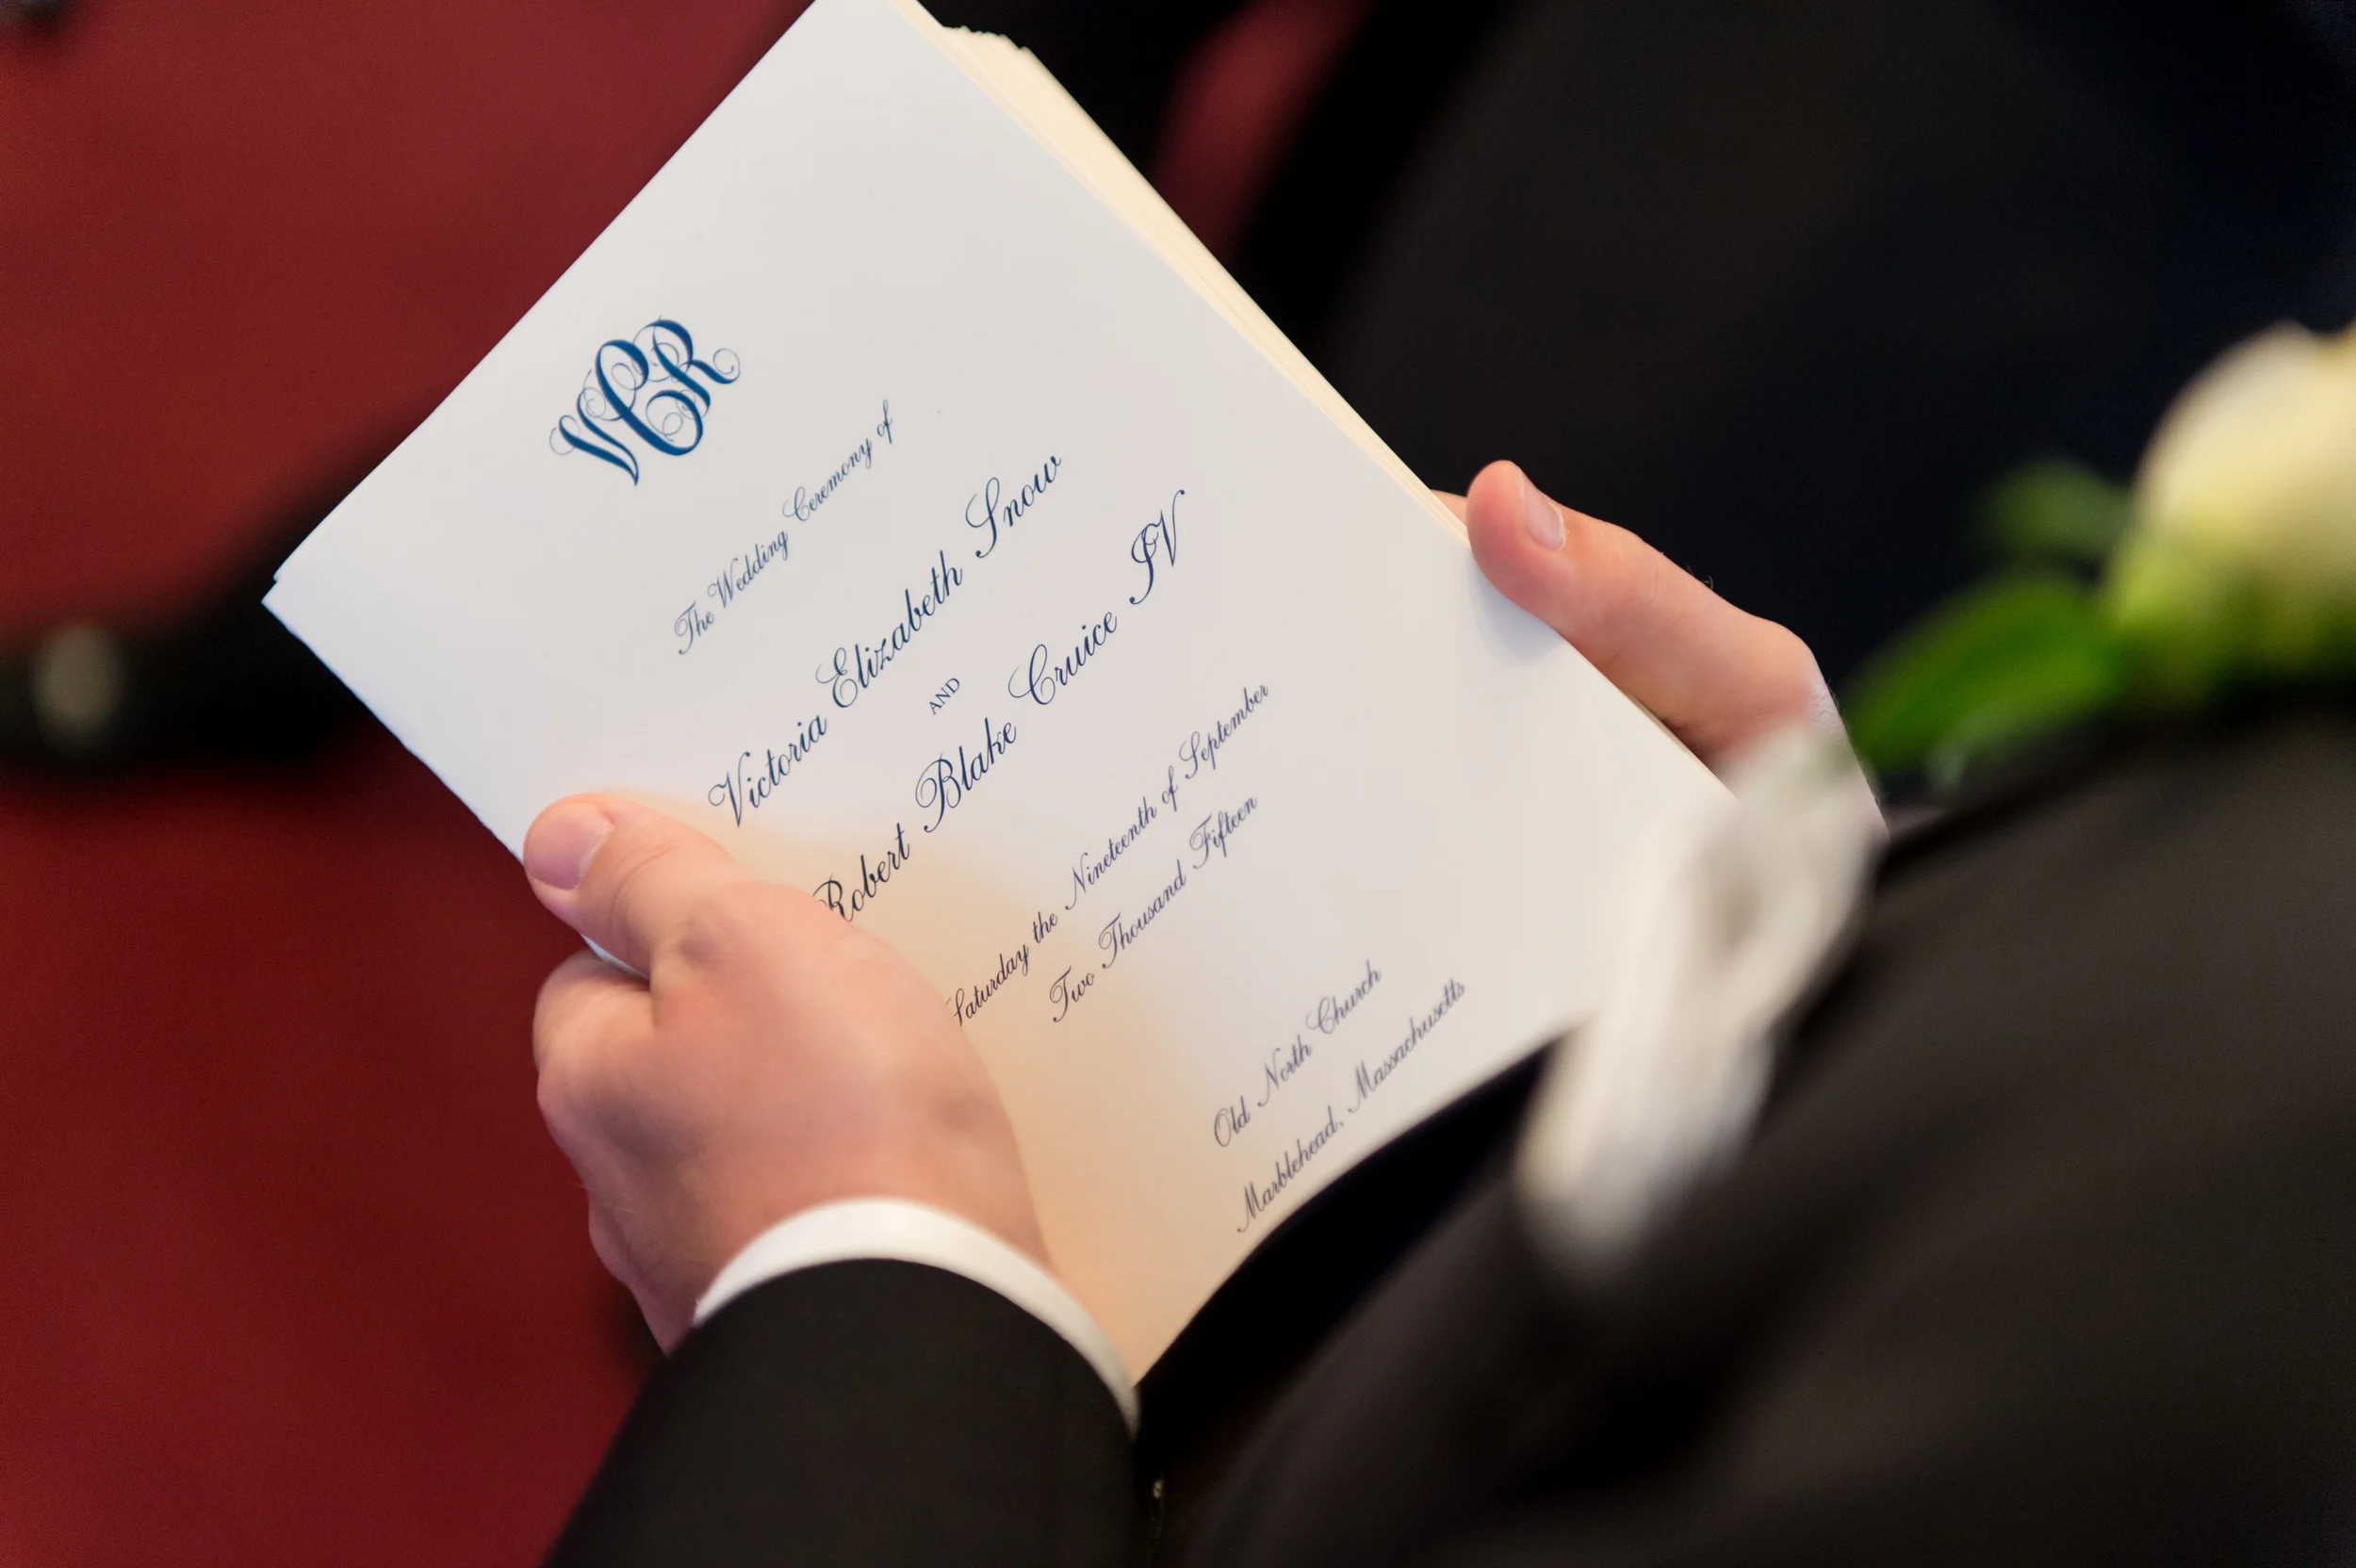 VCR
The Wedding Ceremony of
Victoria Elizabeth Snow
AND
Robert Blake Cruice IV
Saturday the Nineteenth of September
Two Thousand Fifteen
Old North Church
Marblehead, Massachusetts